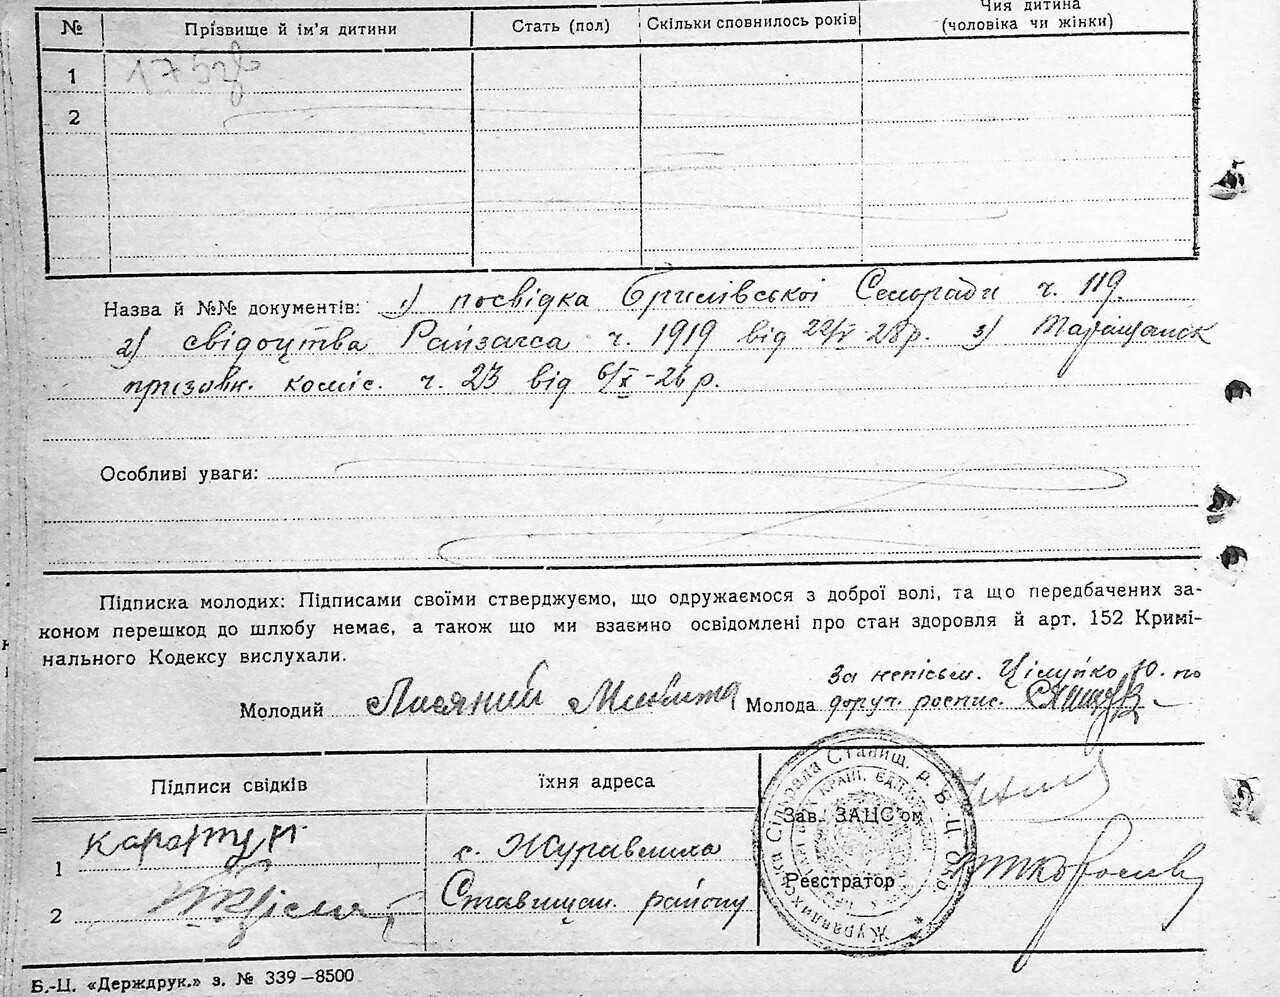 № Прізвище й ім'я дитини Стать (пол) Скільки сповнилось років Чия дитина (чоловіка чи жінки)
1
2
Назва й №№ документів: 1) посвідка Брилівської Сельради ч. 119.
2) свідоцтва Райзагса ч. 1919 від 22/V-28р. 3) Таращанск
призовн. коміс. ч. 23 від 6/X-26р.
Особливі уваги:
Підписка молодих: Підписами своїми стверджуємо, що одружаємося з доброї волі, та що передбачених за-
коном перешкод до шлюбу немає, а також що ми взаємно освідомлені про стан здоровля й арт. 152 Кримі-
нального Кодексу вислухали.
За неписьм. Цілуйко Ю. по
Молодий Лисяний Микита Молода доруч. роспис.
Підписи свідків Їхня адреса
Зав. ЗАЦС'ом
1 с. Журавлиха
Реєстратор
2 Ставищан. району
Журавлихська Сільрада Ставищ. р. Б-Ц Окр.
Б.-Ц. «Держдрук.» з. № 339—8500